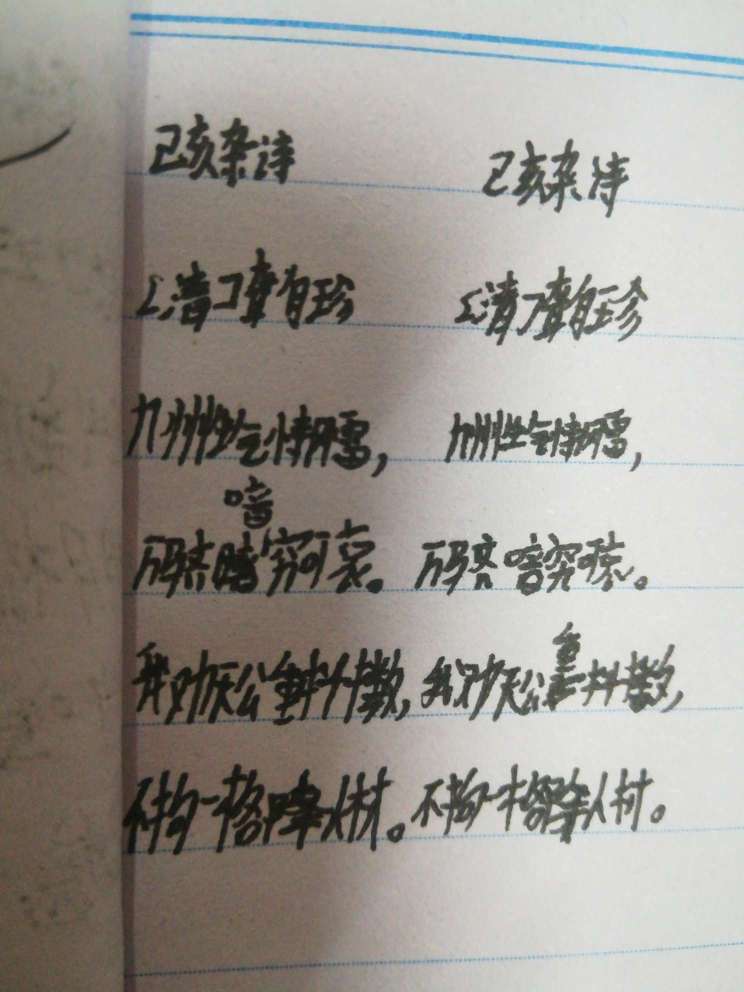 己亥杂诗
[清]龚自珍
九州生气恃风雷,
喑
万马齐暗究可哀。
我劝天公重抖擞,
不拘一格降人材。
己亥杂诗
[清]龚自珍
九州生气恃风雷,
万马齐喑究可哀。
我劝天公重抖擞,
不拘一格降人材。